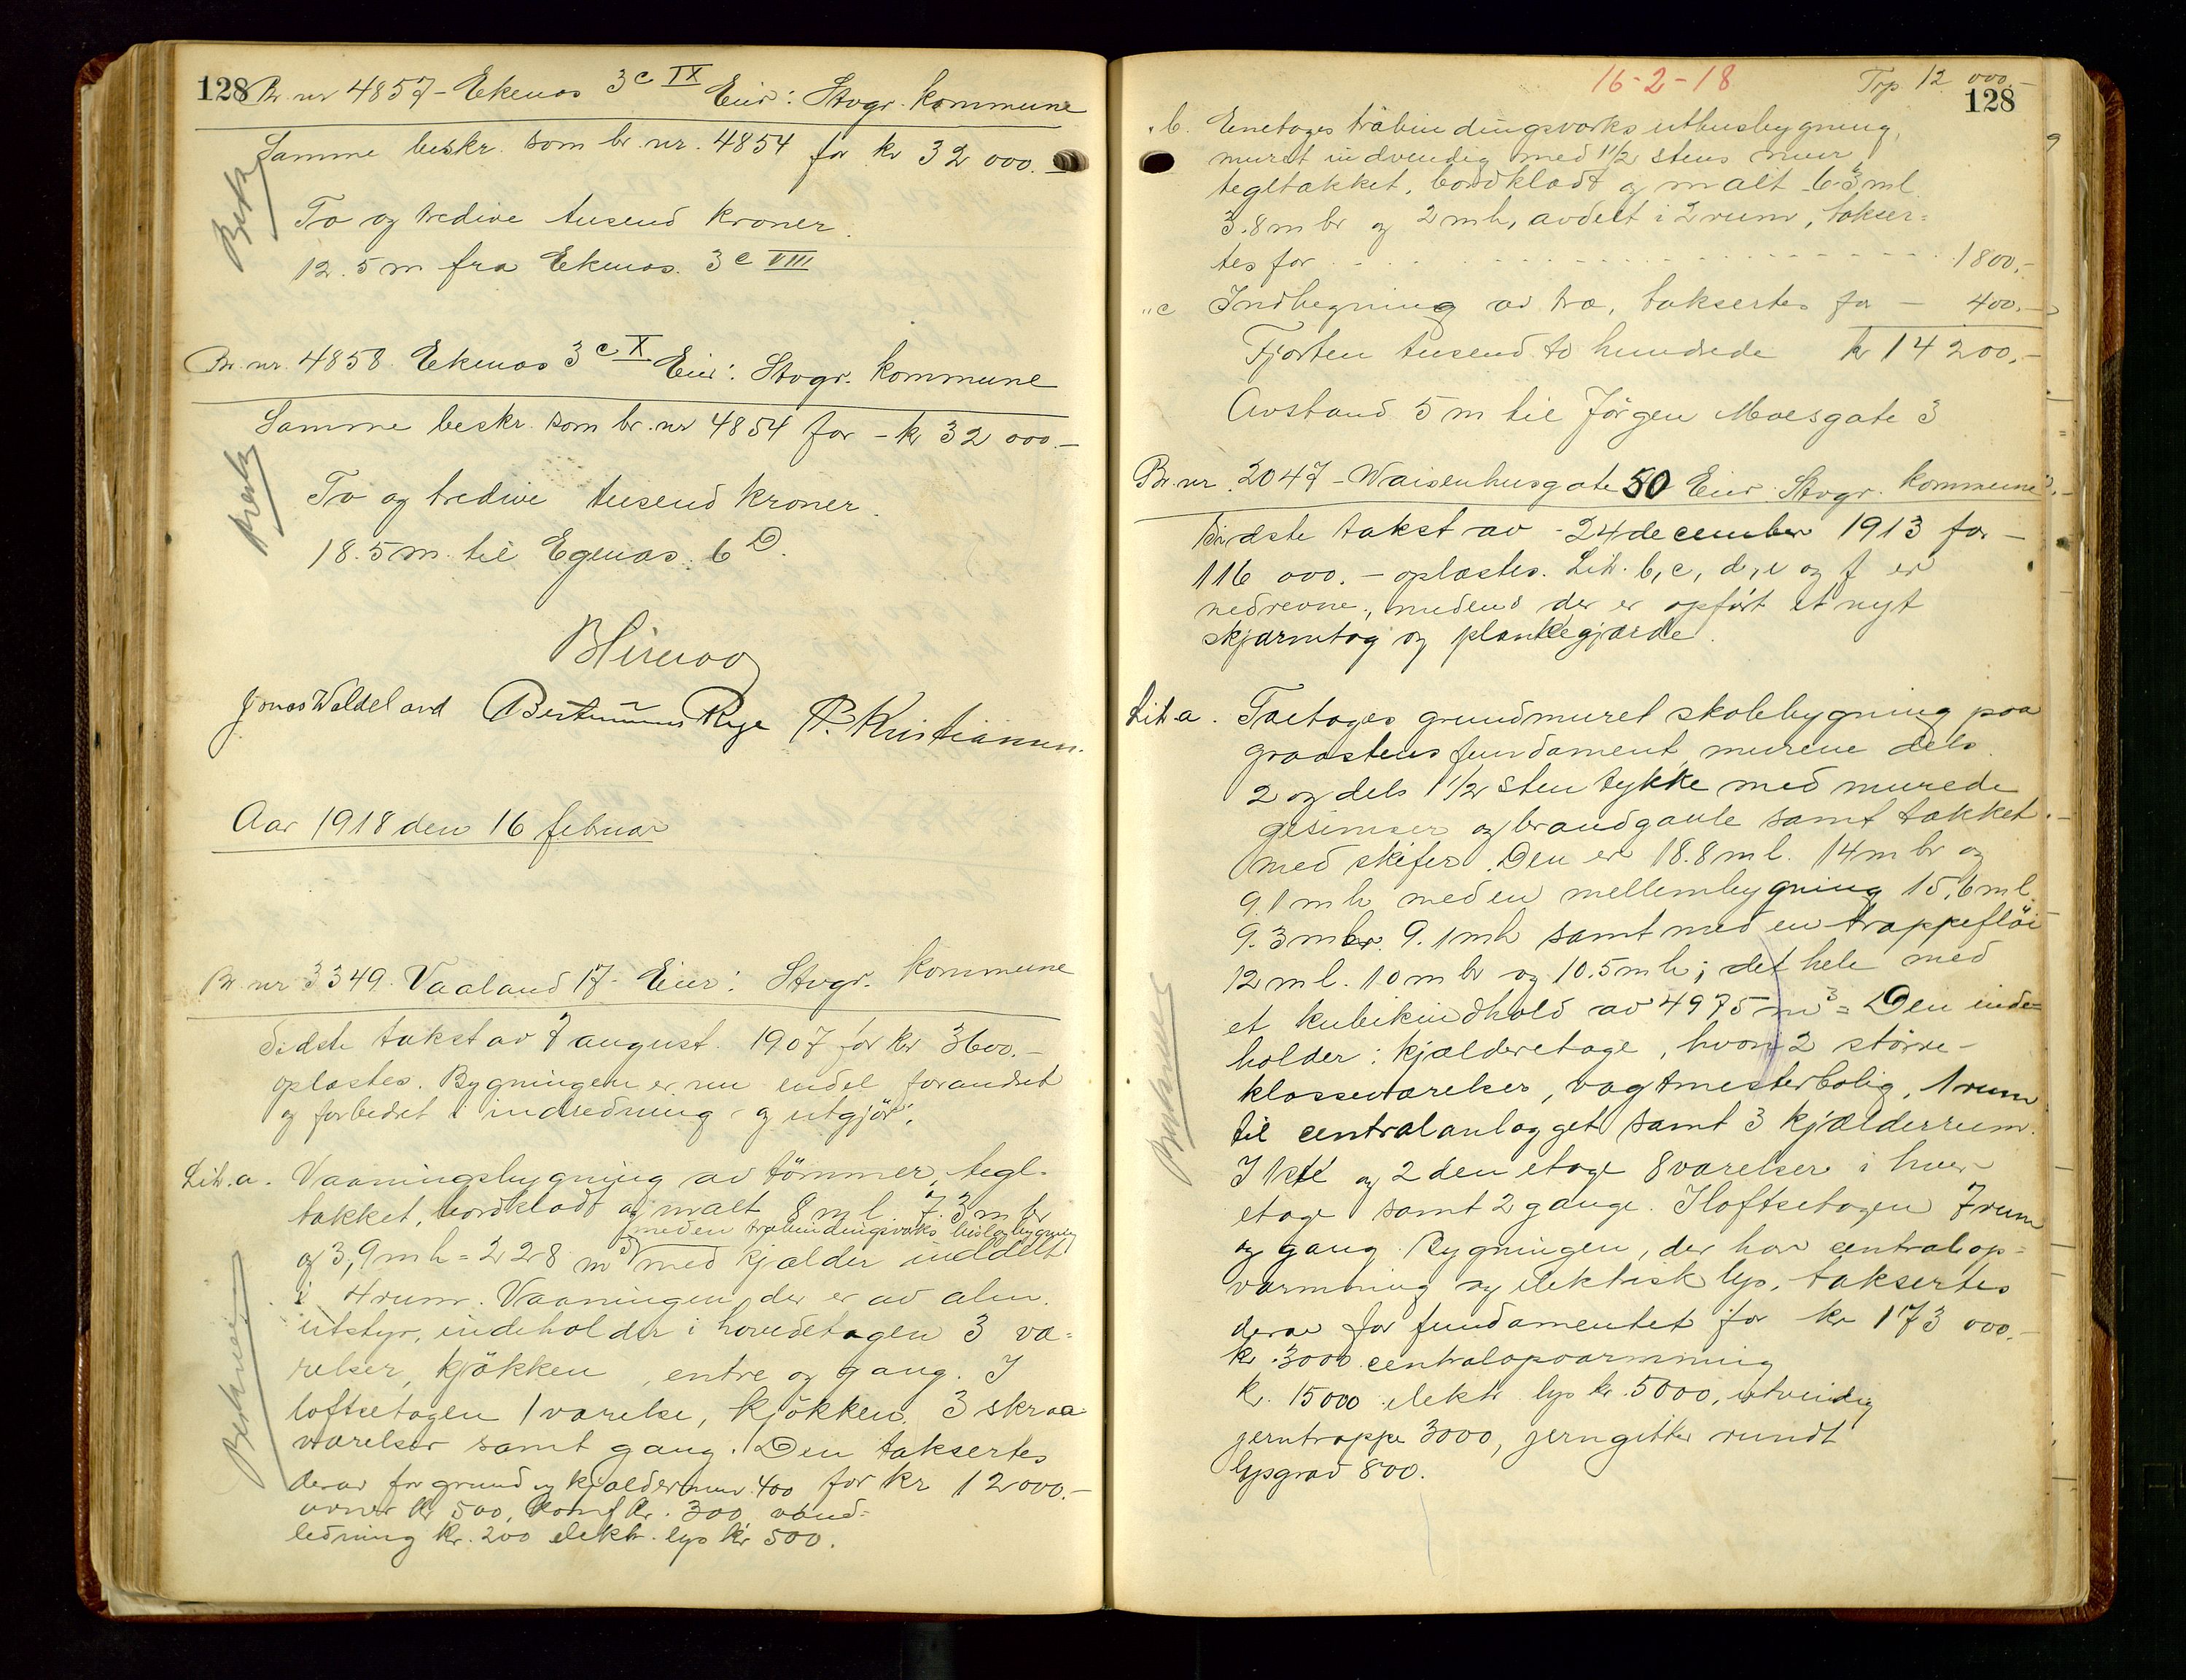 128 Br. nr 4857 - Ekenæs 3c IX Eier: Stvgr. kommune
Samme beskr. som br. nr. 4854 for kr 32 000.-
To og tredive tusend kroner.
12.5 m fra Ekenæs. 3c VIII
Br. nr. 4858. Ekenæs 3c X Eier: Stvgr. kommune
Samme beskr. som br. nr 4854 for - kr 32 000.-
To og tredive tusend kroner.
18.5 m til Egenæs. 6D.
Jonas Waldeland Rege P. Kristiansen.
Aar 1918 den 16 februar
Br. nr 3349. Vaaland 17- Eier: Stvgr. kommune
Sidste takst av 7 august. 1907 for kr 3600.-
oplæstes. Bygningen er nu endel forandret
og forbedret i indredning og utgjør:
Lit. a. Vaaningsbygning av tömmer, tegl-
tækket, bordklædt og malt 8 m l. 7.3 m br
med en træbindingsværks bislagbygning
og 3,9 m h = 228 m3 med kjælder inddelt
i 4 rum. Vaaningen, der er av alm.
utstyr, indeholder i hovedetagen 3 væ-
relser, kjökken, entre og gang. I
loftsetagen 1 værelse, kjökken, 3 skraa-
værelser samt gang. Den taksertes
derav for grund og kjældermur 400 for kr 12 000.-
ovner kr 500, komf kr. 300, vand-
ledning kr. 200 elektr. lys kr 500.
16-2-18 Trp 12 000,-
128
" b. Enetages träbindingsværks uthusbygning,
muret indvendig med 1 1/2 stens mur
tegltækket, bordklædt og malt 6.3 m l
3.8 m br og 2 m h, avdelt i 2 rum, takser-
tes for 1800,-
" c Indhegning av træ, taksertes for - 400.-
Fjorten tusend to hundrede kr 14 200,-
Avstand 5 m til Jörgen Moesgate 3
Br. nr. 2047 - Waisenhusgate 50 Eier Stvgr. kommune
Sidste takst av - 24 december 1913 for -
116 000. - oplæstes. Lit. b, c, d, e og f er
nedrevne, medens der er opfört et nyt
skjærmtag og plankegjærde.
Lit. a. Toetages grundmuret skolebygning paa
graastensfundament, murene dels
2 og dels 1 1/2 sten tykke med murede
gesimser og brandgavle samt tækket
med skifer. Den er 18.8 m l. 14 m br og
9.1 m h med en mellembygning 15,6 m l.
9.3 m br. 9.1 m h samt med en trappeflöi
12 m l. 10 m br og 10.5 m h; det hele med
et kubikindhold av 4975 m3 = Den inde-
holder: kjælderetage, hvori 2 större
klasseværelser, vagtmesterbolig, 1 rum
til centralanlægget samt 3 kjælderrum.
I 1ste og 2den etage 8 værelser i hver
etage samt 2 gange. I loftsetagen 7 rum
og gang. Bygningen, der har centralop-
varmning og elektrisk lys, taksertes
derav for fundamentet for kr 173 000.-
kr. 3000 centralopvarmning
kr. 15000 elektr. lys kr. 5000, utvendig
jerntrappe 3000, jerngitter rundt
lysgrav 800.